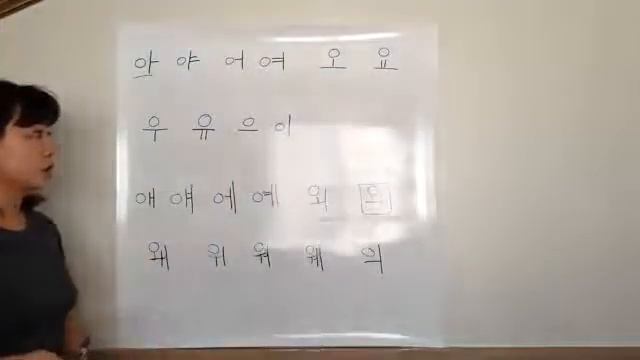 아 야 어 여 오 요
우 유 으 이
애 얘 에 예 외
왜 위 워 웨 의